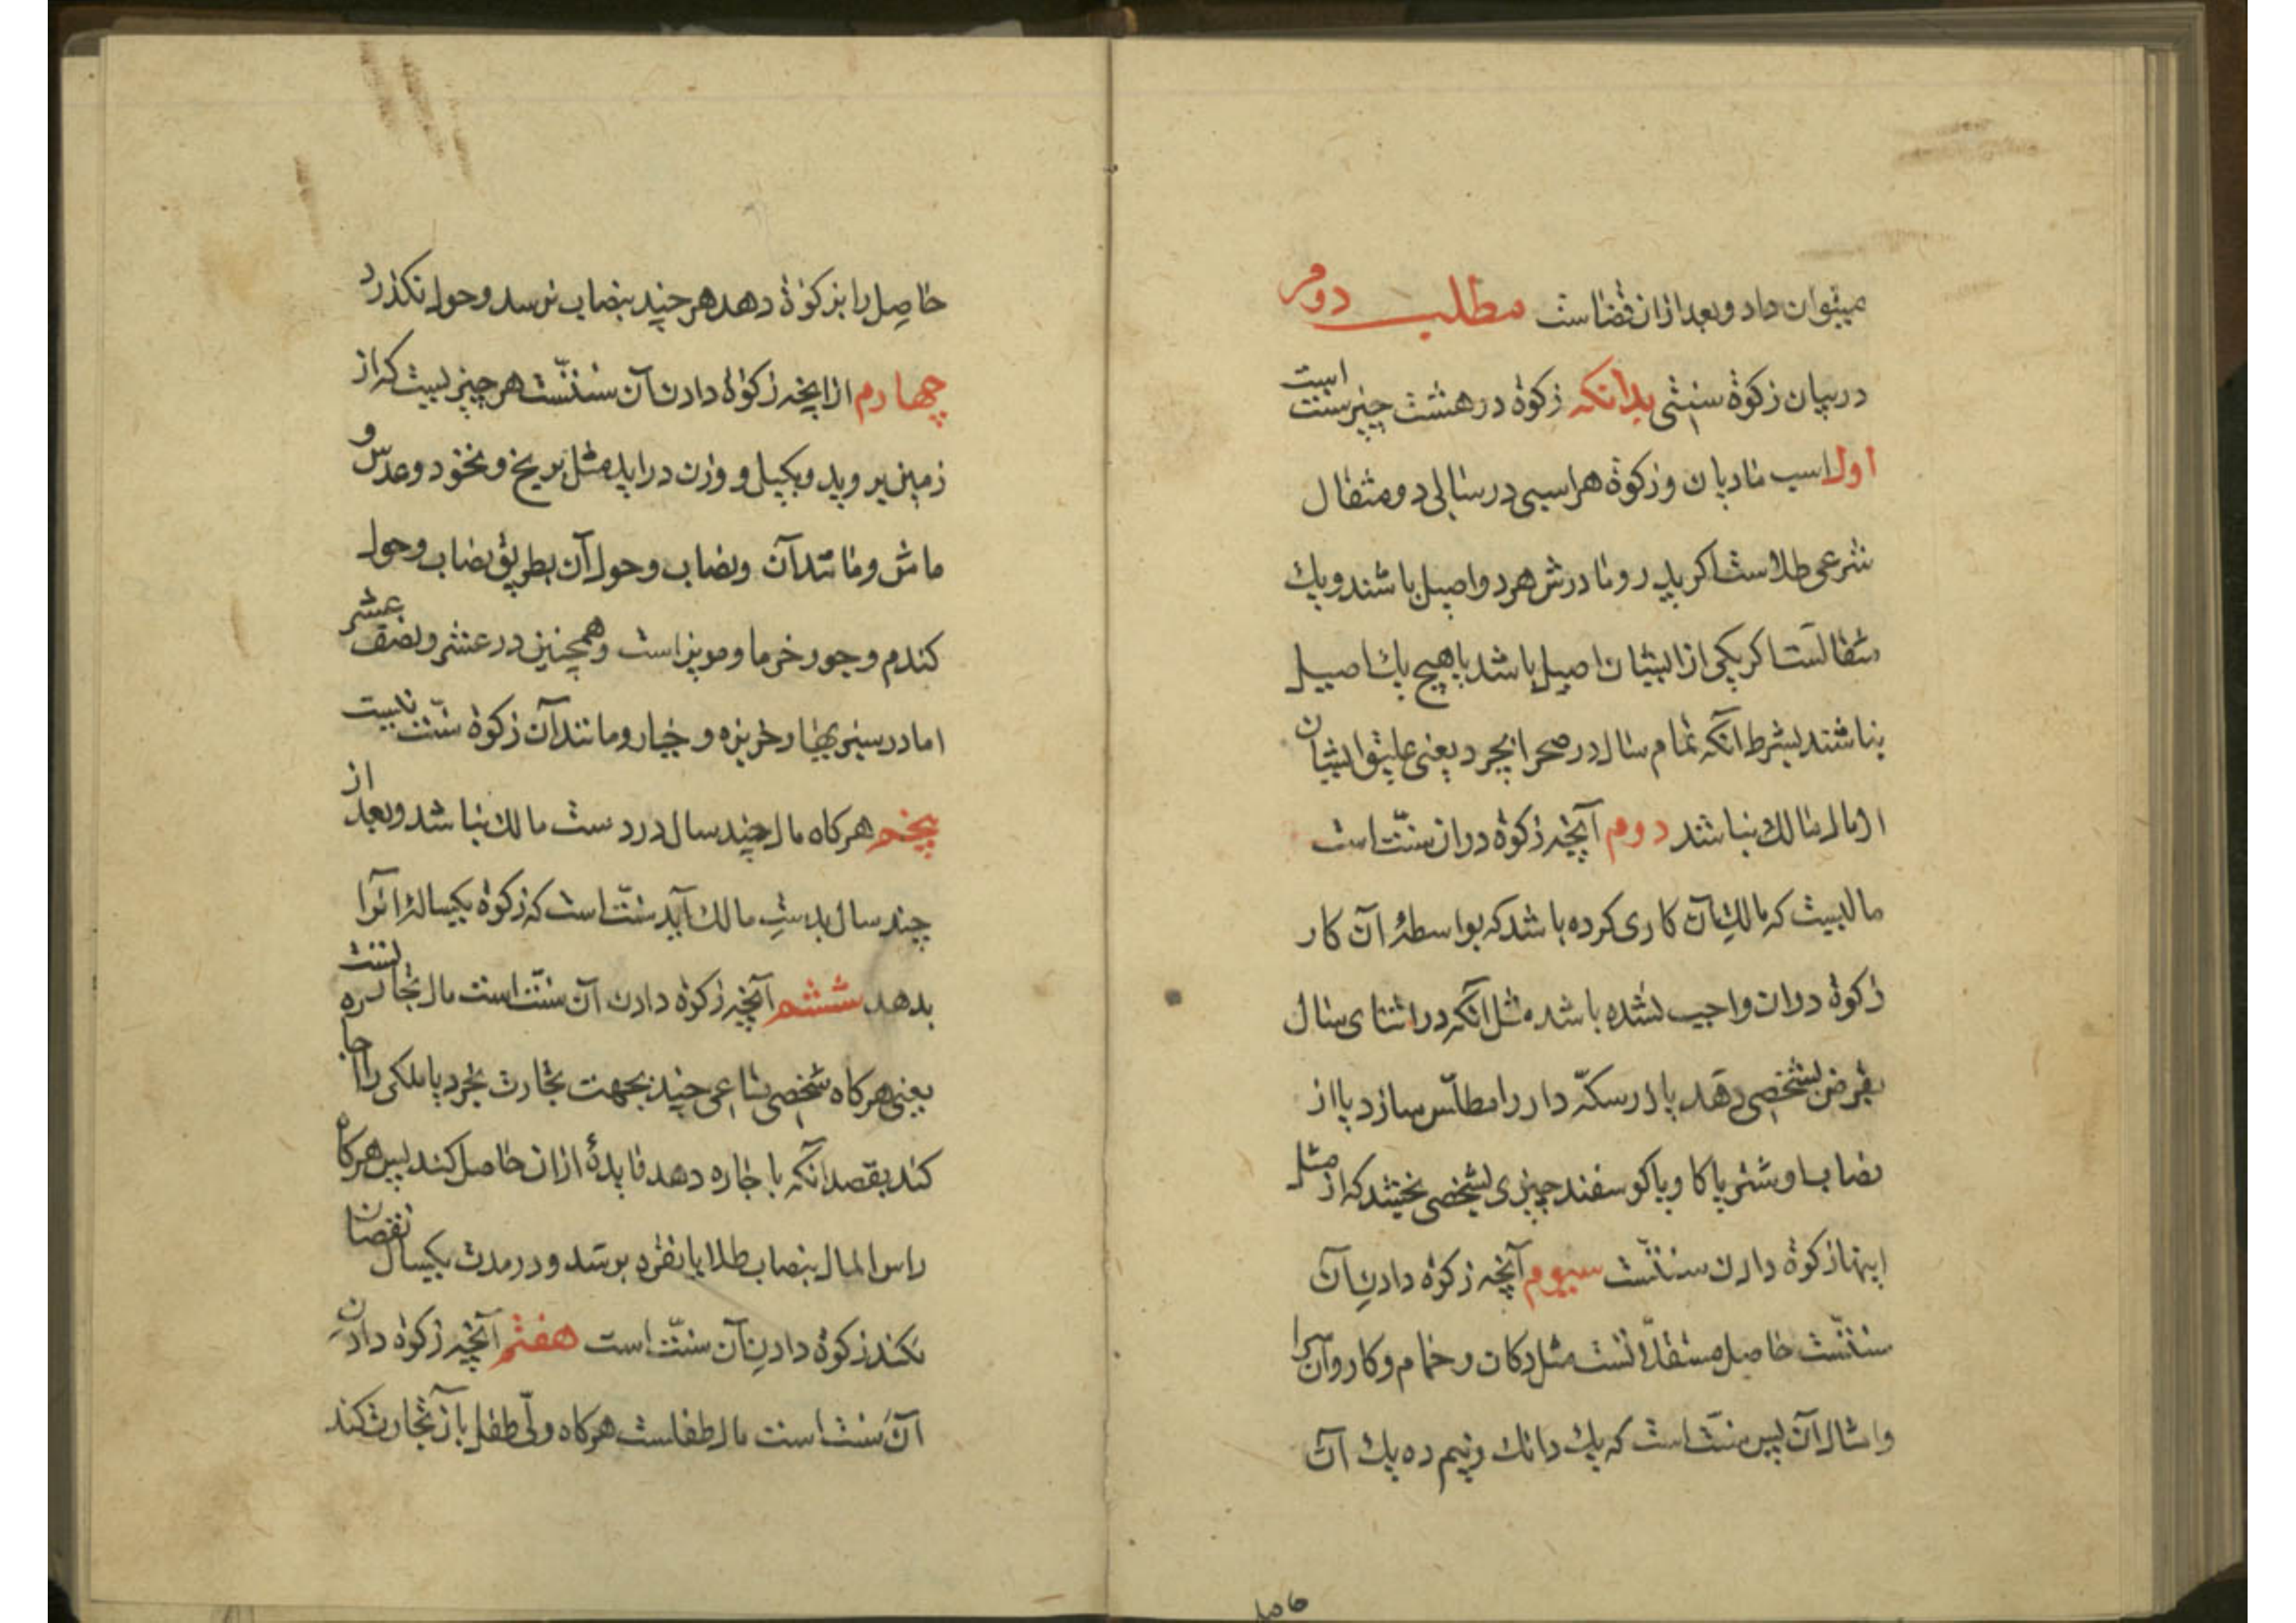 میتوان داد و بعد ازان قضاست مطلب دوم
در بیان زکوة سنتی بدانکه زکوة در هشت چیز سنت است
اول اسب مادیان و زکوة هر اسبی در سالی دو مثقال
شرعی طلاست اگر پدر و مادرش هر دو اصیل باشند و یك
مثقالست اگر یکی از ایشان اصیل باشد یا هیچ یك اصیل
نباشند بشرط آنکه تمام سال در صحرا بچرد یعنی علیق ایشان
از مال مالك نباشد دوم آنچه زکوة دران سنّت است
مالیست که مالكِ آن کاری کرده باشد که بواسطهٔ آن کار
زکوة دران واجب نشده باشد مثل آنکه در اثنای سال
بقرض بشخصی دهد یا زر سکّه دار را مطلّس سازد یا از
نصاب او شتر یا کاو یا کوسفند چیزی بشخصی بخشد که از مثل
اینها زکوة دادن سنّتست سیوم آنچه زکوة دادنِ آن
سنّتست حاصل مستغلّاتست مثل دکان و حمام و کاروانسرا
و امثال آن پس سنّت است که یك دانك و نیم ده یك آن
حاصل
حاصِل را بزکوة دهد هر چند بنصاب نرسد و حول نکذرد
چهارم از انچه زکوة دادن آن سنّتست هر چیزیست که از
زمین بروید و بکیل و وزن دراید مثل برنج و نخود و عدس و
ماش و مانند آن و نصاب و حول آن بطریق نصاب و حول
کندم و جو و خرما و مویز است و همچنین در عشر و نصف عشر
اما در سبزیها و خربزه و خیار و مانند آن زکوة سنّت نیست
پنجم هرکاه مال چند سال در دست مالك نباشد و بعد از
چند سال بدستِ مالك آید سنّت است که زکوة یکسالهٔ انرا
بدهد ششم آنچه زکوة دادن آن سنّت است مال تجارتست
یعنی هرکاه شخصی متاعی چند بجهت تجارت بخرد یا ملکی را اجاره
کند بقصد آنکه باجاره دهد فایدهٔ ازان حاصل کند پس هرکاه
راس المال بنصاب طلا یا نقره برسد و در مدت یکسال نقصان
نکند زکوة دادنِ آن سنّت است هفتم آنچه زکوة دادنِ
آن سنت است مال طفلست هرکاه ولّی طفل بآن تجارت کند